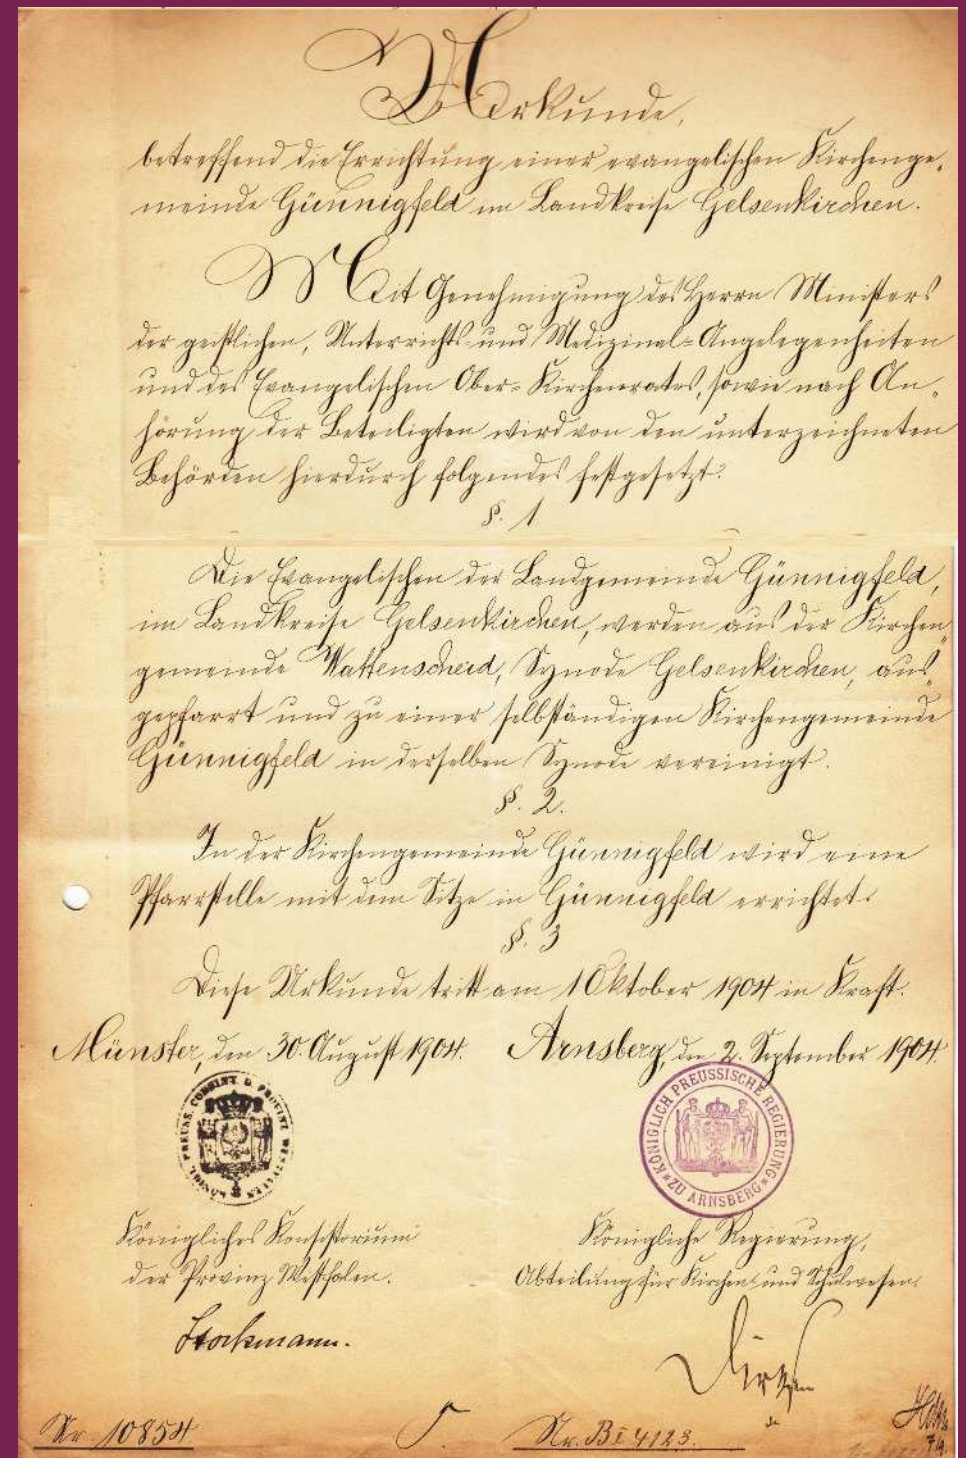 Urkunde,
betreffend die Errichtung einer evangelischen Kirchenge-
meinde Günnigfeld im Landkreise Gelsenkirchen.
Mit Genehmigung des Herrn Ministers
der geistlichen, Unterrichts- und Medizinal-Angelegenheiten
und des Evangelischen Ober-Kirchenrates, sowie nach An-
hörung der Beteiligten wird von den unterzeichneten
Behörden hierdurch folgendes festgesetzt:
§. 1
Die Evangelischen der Landgemeinde Günnigfeld,
im Landkreise Gelsenkirchen, werden aus der Kirchen-
gemeinde Wattenscheid, Synode Gelsenkirchen, aus-
gepfarrt und zu einer selbständigen Kirchengemeinde
Günnigfeld in derselben Synode vereinigt.
§. 2.
In der Kirchengemeinde Günnigfeld wird eine
Pfarrstelle mit dem Sitze in Günnigfeld errichtet.
§. 3
Diese Urkunde tritt am 1 Oktober 1904 in Kraft.
Münster, den 30. August 1904. Arnsberg, den 2. September 1904.
KÖNIGL. PREUSS. CONSIST. D. PROVINZ WESTFALEN
KÖNIGLICH PREUSSISCHE REGIERUNG ZU ARNSBERG
Königliches Konsistorium
der Provinz Westfalen.
Stockmann.
Königliche Regierung,
Abteilung für Kirchen- und Schulwesen.
Nr. 10854
Nr. B I 4123.